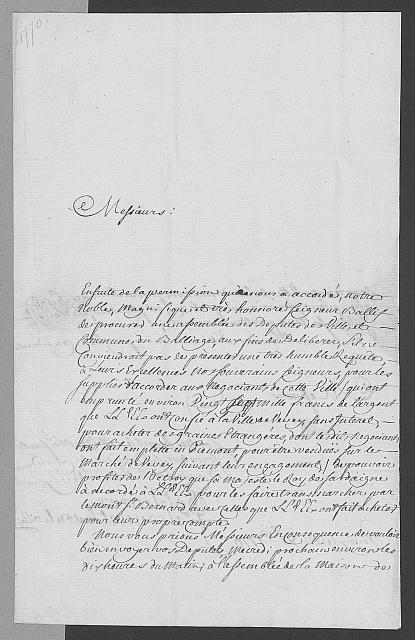 1770.
Messieurs:
Ensuite de la permission que nous a accordé, notre
Noble, Magnifique et très honnoré Seigneur Ballif
de procurer une assemblée des Députés de Ville et
Commune, du Balliage, aux fins de Deliberer, s'il ne
conviendroit pas de présenter une très humble Requête
à Leurs Excellences Nos Souverains Seigneurs, pour les
supplier d'accorder aux Negociants de cette Ville qui ont
emprunté environ Vingt sept mille francs de l'argent
que LL EEx ont confié à la Ville de Vevey, sans Interet
pour acheter des graines Etrangeres dont le dits Negociants
ont fait emplette en Piemont, pour être vendües sur le
Marché de Vevey, suivant leur engagement, de pouvoir
profiter de l'Octroy que sa Majesté le Roy de Sardaigne
a accordé à LL EEx pour les faire transmarcher par
le mont St Bernard avec celles que LL EEx ont fait acheter
pour leur propre compte.
Nous vous prions Messieurs En consequence de vouloir
bien envoyer vos Deputés Mecredi prochain environ les
dix heures du Matin, à l'assemblée de la Maison de